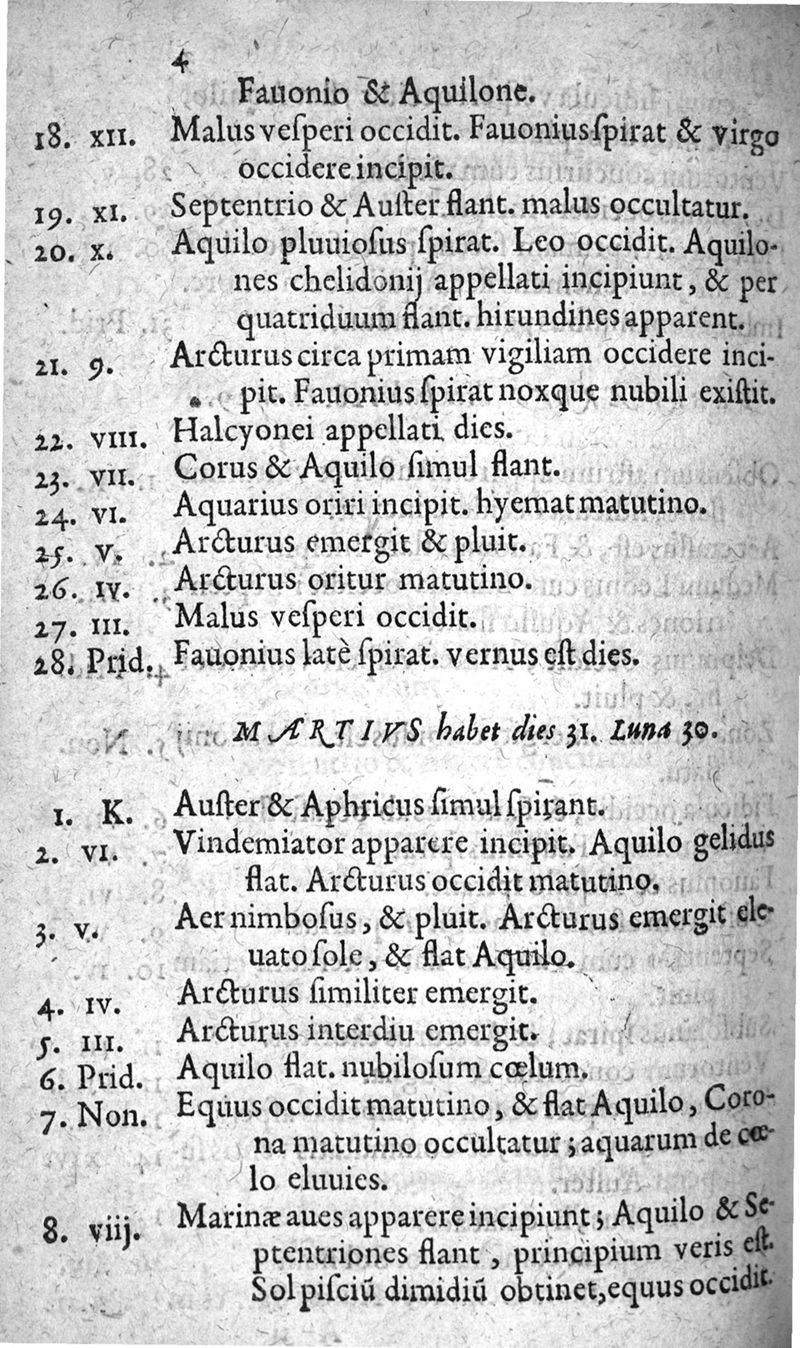 4
Fauonio & Aquilone.
18. XII. Malus veſperi occidit. Fauonius ſpirat & virgo
occidere incipit.
19. XI. Septentrio & Auſter flant. malus occultatur.
20. X. Aquilo pluuioſus ſpirat. Leo occidit. Aquilo-
nes chelidonij appellati incipiunt, & per
quatriduum flant. hirundines apparent.
21. 9. Arcturus circa primam vigiliam occidere inci-
pit. Fauonius ſpirat noxque nubili exiſtit.
22. VIII. Halcyonei appellati dies.
23. VII. Corus & Aquilo ſimul flant.
24. VI. Aquarius oriri incipit. hyemat matutino.
25. V. Arcturus emergit & pluit.
26. IV. Arcturus oritur matutino.
27. III. Malus veſperi occidit.
28. Prid. Fauonius latè ſpirat. vernus eſt dies.
MARTIVS habet dies 31. Luna 30.
1. K. Auſter & Aphricus ſimul ſpirant.
2. VI. Vindemiator apparere incipit. Aquilo gelidus
flat. Arcturus occidit matutino.
3. V. Aer nimboſus, & pluit. Arcturus emergit ele-
uato ſole, & flat Aquilo.
4. IV. Arcturus ſimiliter emergit.
5. III. Arcturus interdiu emergit.
6. Prid. Aquilo flat. nubiloſum cœlum.
7. Non. Equus occidit matutino, & flat Aquilo, Coro-
na matutino occultatur; aquarum de cœ-
lo eluuies.
8. viij. Marinæ aues apparere incipiunt; Aquilo & Se-
ptentriones flant, principium veris eſt.
Sol piſciũ dimidiũ obtinet, equus occidit.